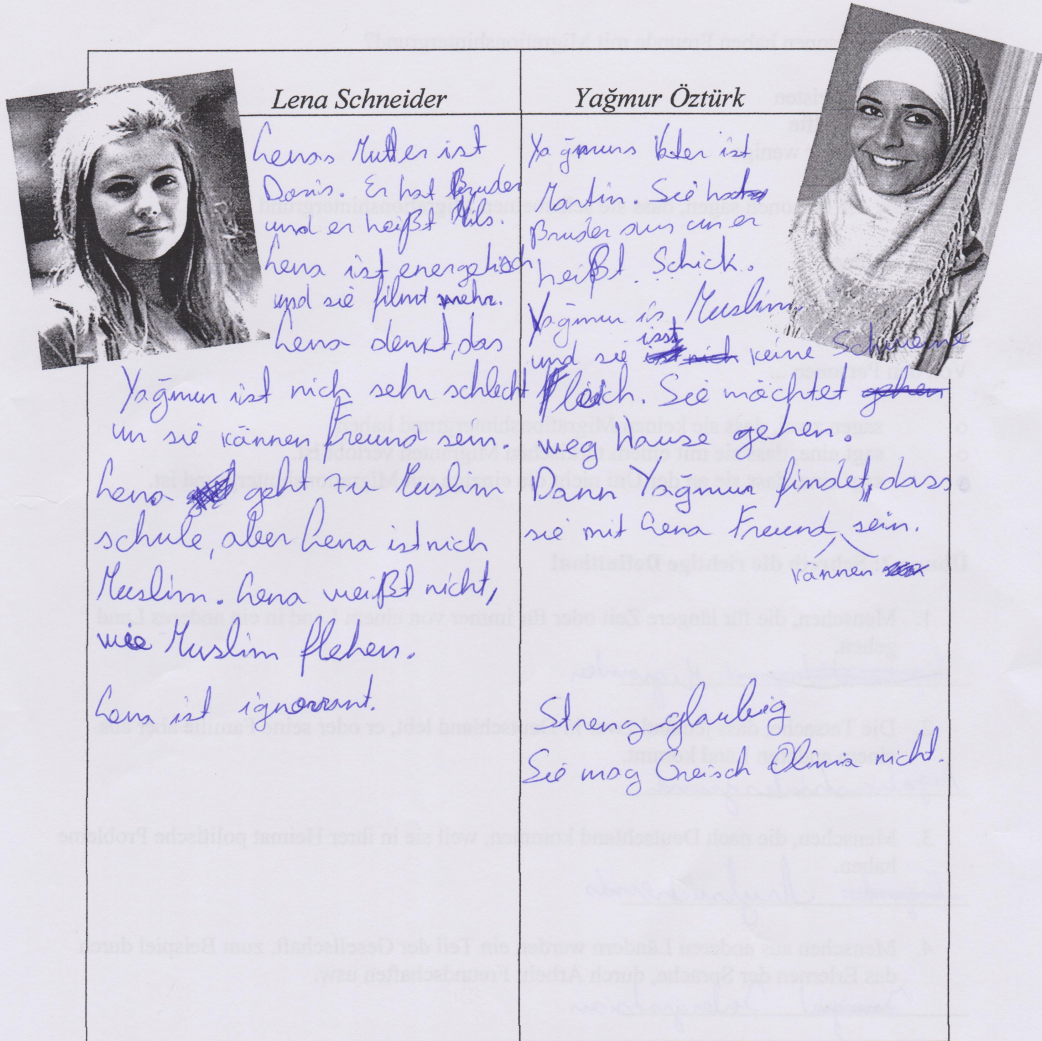 Lena Schneider
Lenas Mutter ist
Doris. Er hat Bruder
und er heißt Nils.
Lena ist energetisch
und sie filmt mehr.
Lena denkt, das
Yağmur ist nich sehr schlecht
un sie kännen Freund sein.
Lena geht zu Muslim
schule, aber Lena ist nich
Muslim. Lena weißt nicht,
wie Muslim flehen.
Lena ist ignorrant.
Yağmur Öztürk
Yağmurs Vater ist
Martin. Sie hat
Bruder aus un er
heißt Schick.
Yağmur is Muslim
und sie isst keine Schweine
Fleich. Sie möchtet
weg Hause gehen.
Dann Yağmur findet, dass
sie mit Lena Freund sein.
kännen
Streng glaubig
Sie mag nicht.